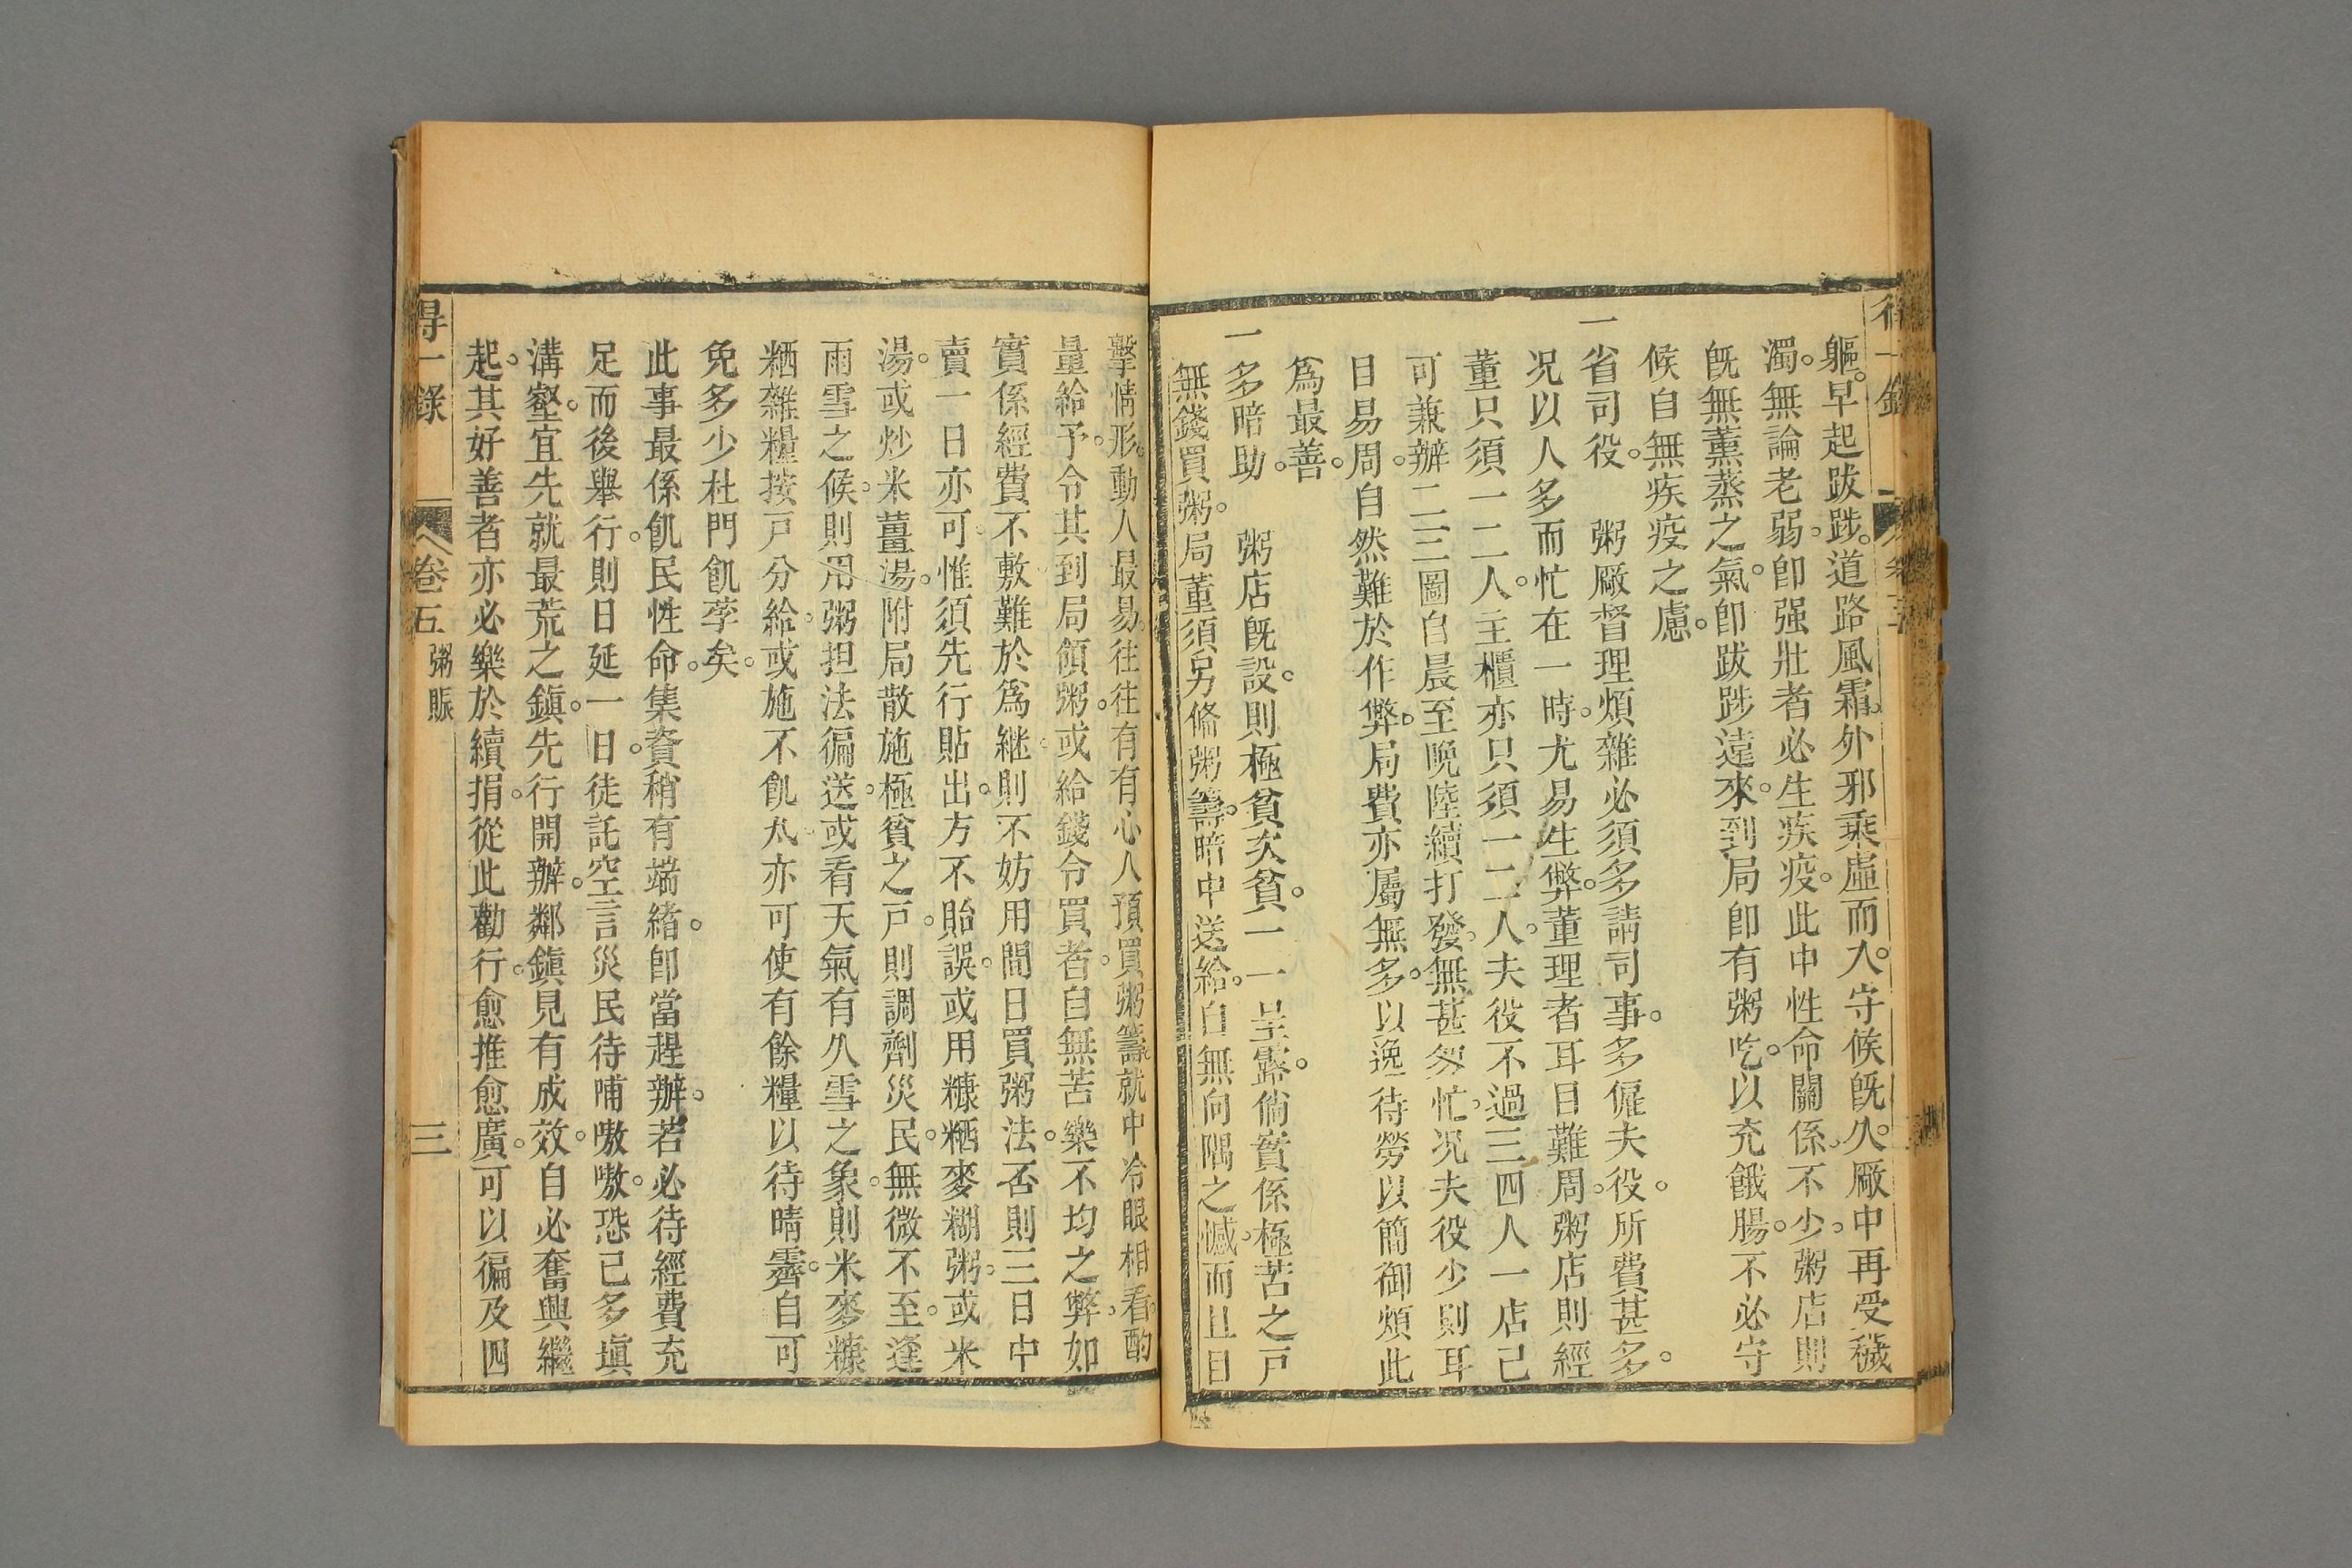 軀。早起跋踄。道路風霜。外邪乘虛而入。守候旣久。厰中再受穢
濁。無論老弱。卽强壯者必生疾疫。此中性命關係。不少。粥店則
旣無薰蒸之氣。卽跋踄遠來。到局卽有粥吃。以充餓腸。不必守
候自無疾疫之慮。
一省司役。 粥厰督理煩雜必須多請司事。多僱夫役。所費甚多。
况以人多而忙在一時。尤易生弊。董理者耳目難周。粥店則經
董只須一二人。主櫃亦只須一二人。夫役不過三四人一店已
可兼辦二三圖自晨至晚陸續打發。無甚匆忙。况夫役少則耳
目易周。自然難於作弊。局費亦屬無多。以逸待勞以簡御煩此
爲最善。
一多暗助。 粥店旣設。則極貧次貧。一一呈露。倘實係極苦之戸
無錢買粥。局董須另條粥籌。暗中送給。自無向隅之憾。而且目
擊情形。動人最易。往往有有心人預買粥籌。就中冷眼相看。酌
量給予。令其到局領粥。或給錢令買者。自無苦樂不均之弊。如
實係經費不敷難於爲継。則不妨用間日買粥法。否則三日中
賣一日亦可。惟須先行貼出。方不貽誤。或用糠粞麥糊粥。或米
湯。或炒米薑湯。附局散施。極貧之戸。則調劑災民。無微不至。逢
雨雪之候。則用粥担法徧送。或看天氣有久雪之象。則米麥糠
粞雜糧按戸分給。或施不飢丸。亦可使有餘糧以待晴霽。自可
免多少杜門飢莩矣。
此事最係飢民性命。集資稍有端緒。卽當趕辦。若必待經費充
足而後舉行。則日延一日。徒託空言災民待哺嗷嗷。恐已多塡
溝壑。宜先就最荒之鎭。先行開辦。鄰鎭見有成效。自必奮興繼
起。其好善者亦必樂於續捐。從此勸行。愈推愈廣。可以徧及四
得一錄 卷五 粥賑 三